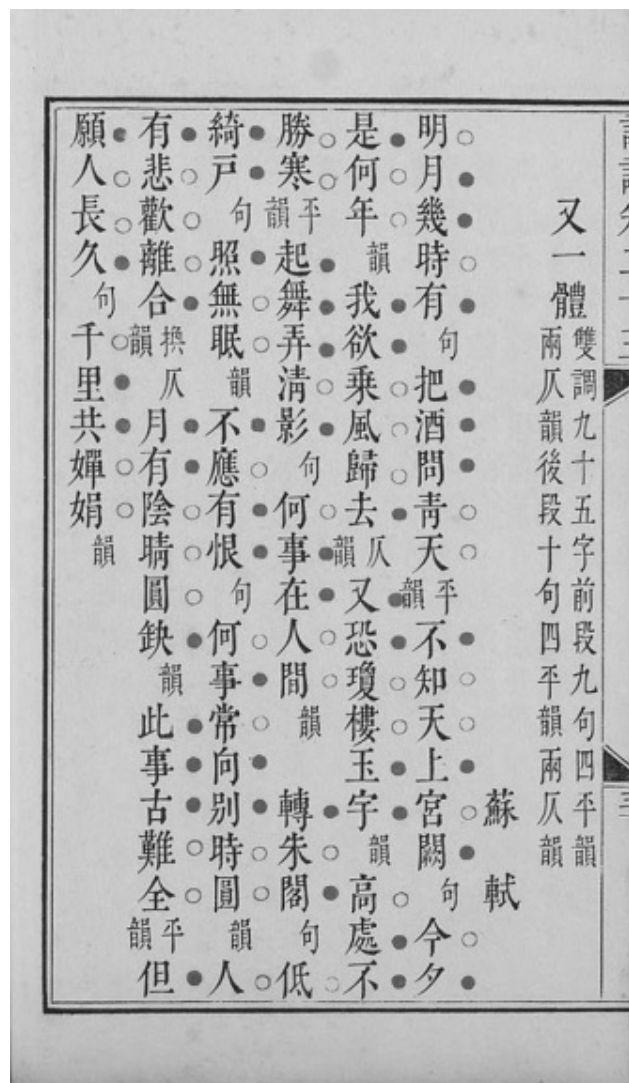 又一體雙調九十五字前段九句四平韻
兩仄韻後段十句四平韻兩仄韻
蘇軾
明月幾時有句把酒問青天平韻不知天上宮闕句今夕
是何年韻我欲乗風歸去仄韻又恐瓊樓玉宇韻高處不
勝寒平韻起舞弄清影句何事在人間韻轉朱閣句低
綺戶句照無眠韻不應有恨句何事常向別時圓韻人
有悲歡離合換仄韻月有陰晴圓缺韻此事古難全平韻但
願人長久句千里共嬋娟韻